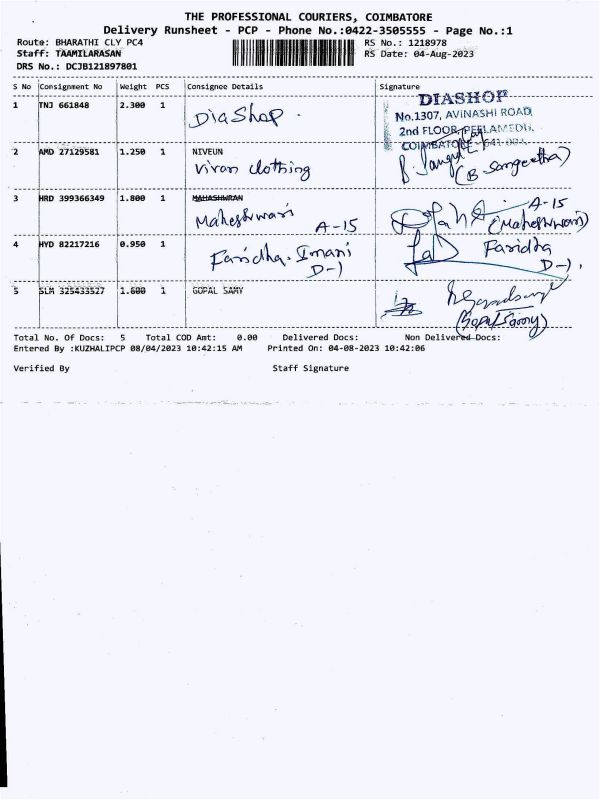 THE PROFESSIONAL COURIERS, COIMBATORE
Delivery Runsheet - PCP - Phone No.:0422-3505555 - Page No.:1
Route: BHARATHI CLY PC4 RS No.: 1218978
Staff: TAAMILARASAN RS Date: 04-Aug-2023
DRS No.: DCJB121897801
S No Consignment No Weight PCS Consignee Details Signature
1 TNJ 661848 2.300 1 DiaShop.
DIASHOP
No.1307, AVINASHI ROAD,
2nd FLOOR, PEELAMEDU,
COIMBATORE - 641 004.
2 AMD 27129581 1.250 1 NIVEUN
Viran clothing
(B. Sangeetha)
3 HRD 399366349 1.800 1 MAHASHWRAN
Maheshwari A-15
A-15
(Maheshwari)
4 HYD 82217216 0.950 1
Faridha. Imani
D-1
Faridha
D-1,
5 SLM 325433527 1.600 1 GOPAL SAMY
(Gopal Samy)
Total No. Of Docs: 5 Total COD Amt: 0.00 Delivered Docs: Non Delivered Docs:
Entered By :KUZHALIPCP 08/04/2023 10:42:15 AM Printed On: 04-08-2023 10:42:06
Verified By Staff Signature